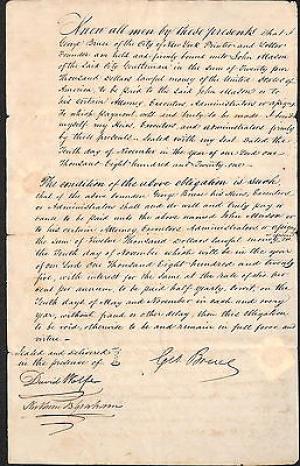 Know all men by these presents that I
George Bruce of the City of New York Printer and Letter
Founder am held and firmly bound unto John Mason
of the said City Gentleman in the sum of Twenty four
Thousand Dollars lawful money of the United States of
America, to be paid to the said John Mason or to
his certain Attorney Executors Administrators or assigns
To which payment well and truly to be made I bind
myself my Heirs, Executors and administrators firmly
by these presents Sealed with my Seal Dated the
Tenth day of November in the year of our Lord one
Thousand Eight hundred and Twenty one
The condition of the above obligation is such,
that if the above bounden George Bruce his Heirs, Executors
or Administrators shall and do well and truly pay or
cause to be paid unto the above named John Mason or
to his certain Attorney, Executors Administrators or assigns
the sum of Twelve Thousand Dollars lawful money on
the Tenth day of November which will be in the year
of our Lord One Thousand Eight hundred and twenty
five, with interest for the same at the rate of six per
cent per annum, to be paid half yearly, to wit, on the
Tenth days of May and November in each and every
year, without fraud or other delay, then this obligation
to be void, otherwise to be and remain in full force and
virtue
Sealed and delivered
in the presence of
Geo. Bruce
David Wolfe